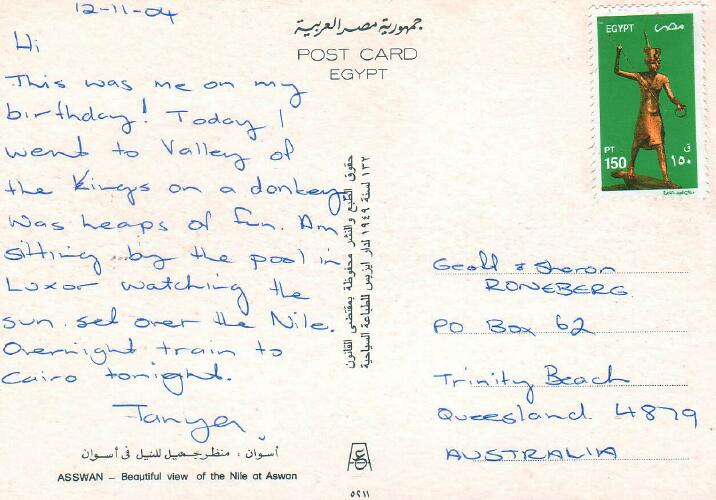 12-11-04
Hi
This was me on my
birthday! Today I
went to Valley of
the Kings on a donkey
was heaps of fun. Am
sitting by the pool in
Luxor watching the
sun set over the Nile.
Overnight train to
Cairo tonight.
Tanya
أسوان : منظر جميل للنيل فى أسوان
ASSWAN – Beautiful view of the Nile at Aswan
جمهورية مصر العربية
POST CARD
EGYPT
حقوق الطبع والنشر محفوظة بمقتضى القانون
١٣٢ لسنة ١٩٤٩ لدار ايزيس للطباعة السياحية
٥٢١١
EGYPT مصر
PT ق
150 ١٥٠
Geoff & Sharon
RONEBERG
PO Box 62
Trinity Beach
Queesland 4879
AUSTRALIA